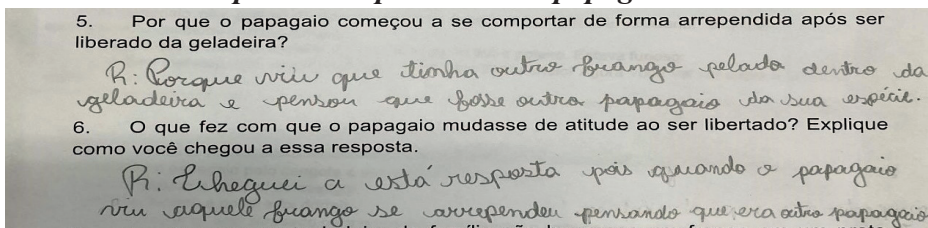 5. Por que o papagaio começou a se comportar de forma arrependida após ser
liberado da geladeira?
R: Porque viu que tinha outro frango pelado dentro da
geladeira e pensou que fosse outro papagaio da sua espécie.
6. O que fez com que o papagaio mudasse de atitude ao ser libertado? Explique
como você chegou a essa resposta.
R: Cheguei a está resposta pois quando o papagaio
viu aquele frango se arrependeu pensando que era outro papagaio